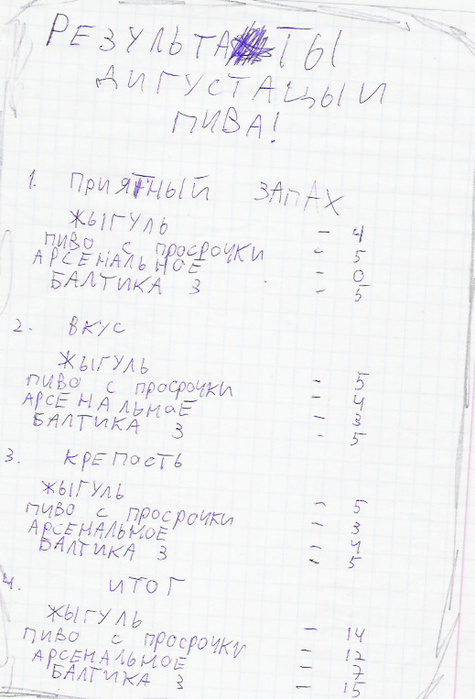 РЕЗУЛЬТАТЫ
ДИГУСТАЦЫИ
ПИВА!
1. ПРИЯТНЫЙ ЗАПАХ
ЖЫГУЛЬ - 4
ПИВО С ПРОСРОЧКИ - 5
АРСЕНАЛЬНОЕ - 0
БАЛТИКА 3 - 5
2. ВКУС
ЖЫГУЛЬ - 5
ПИВО С ПРОСРОЧКИ - 4
АРСЕНАЛЬНОЕ - 3
БАЛТИКА 3 - 5
3. КРЕПОСТЬ
ЖЫГУЛЬ - 5
ПИВО С ПРОСРОЧКИ - 3
АРСЕНАЛЬНОЕ - 4
БАЛТИКА 3 - 5
4. ИТОГ
ЖЫГУЛЬ - 14
ПИВО С ПРОСРОЧКИ - 12
АРСЕНАЛЬНОЕ - 7
БАЛТИКА 3 - 15